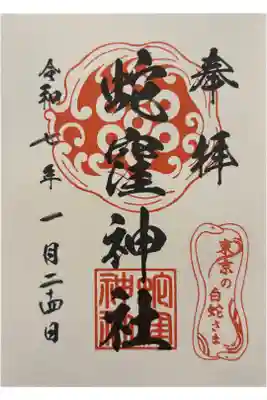 奉拝
蛇窪神社
令和七年一月二十四日
東京の
白蛇さま
蛇窪
神社